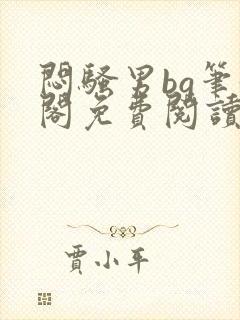 悶騷男bg筆
閣免費閱讀
賈小平